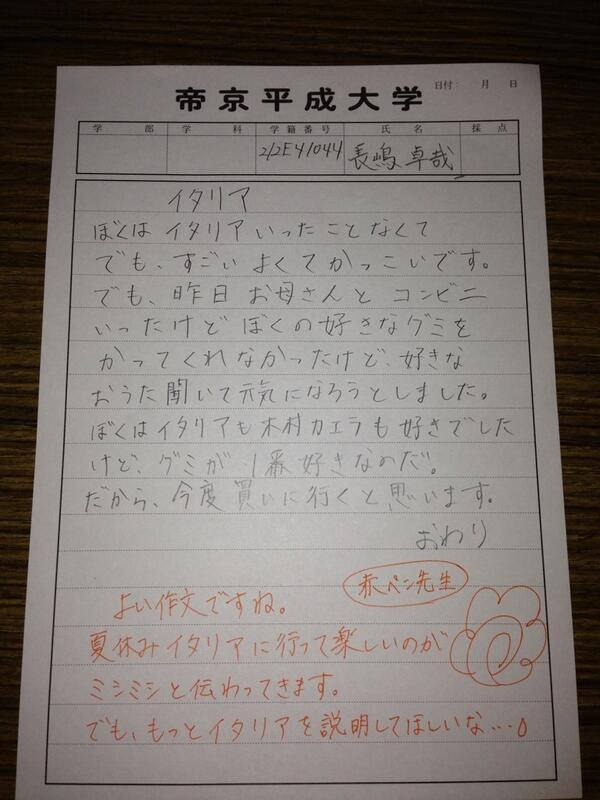 日付： 月 日
帝京平成大学
学部 学科 学籍番号 氏名 採点
212E41044 長嶋卓哉
イタリア
ぼくはイタリアいったことなくて
でも、すごいよくてかっこいです。
でも、昨日お母さんとコンビニ
いったけどぼくの好きなグミを
かってくれなかったけど、好きな
おうた聞いて元気になろうとしました。
ぼくはイタリアも木村カエラも好きでした
けど、グミが1番好きなのだ。
だから、今度買いに行くと思います。
おわり
赤ペン先生
よい作文ですね。
夏休みイタリアに行って楽しいのが
ミシミシと伝わってきます。
でも、もっとイタリアを説明してほしいな…。